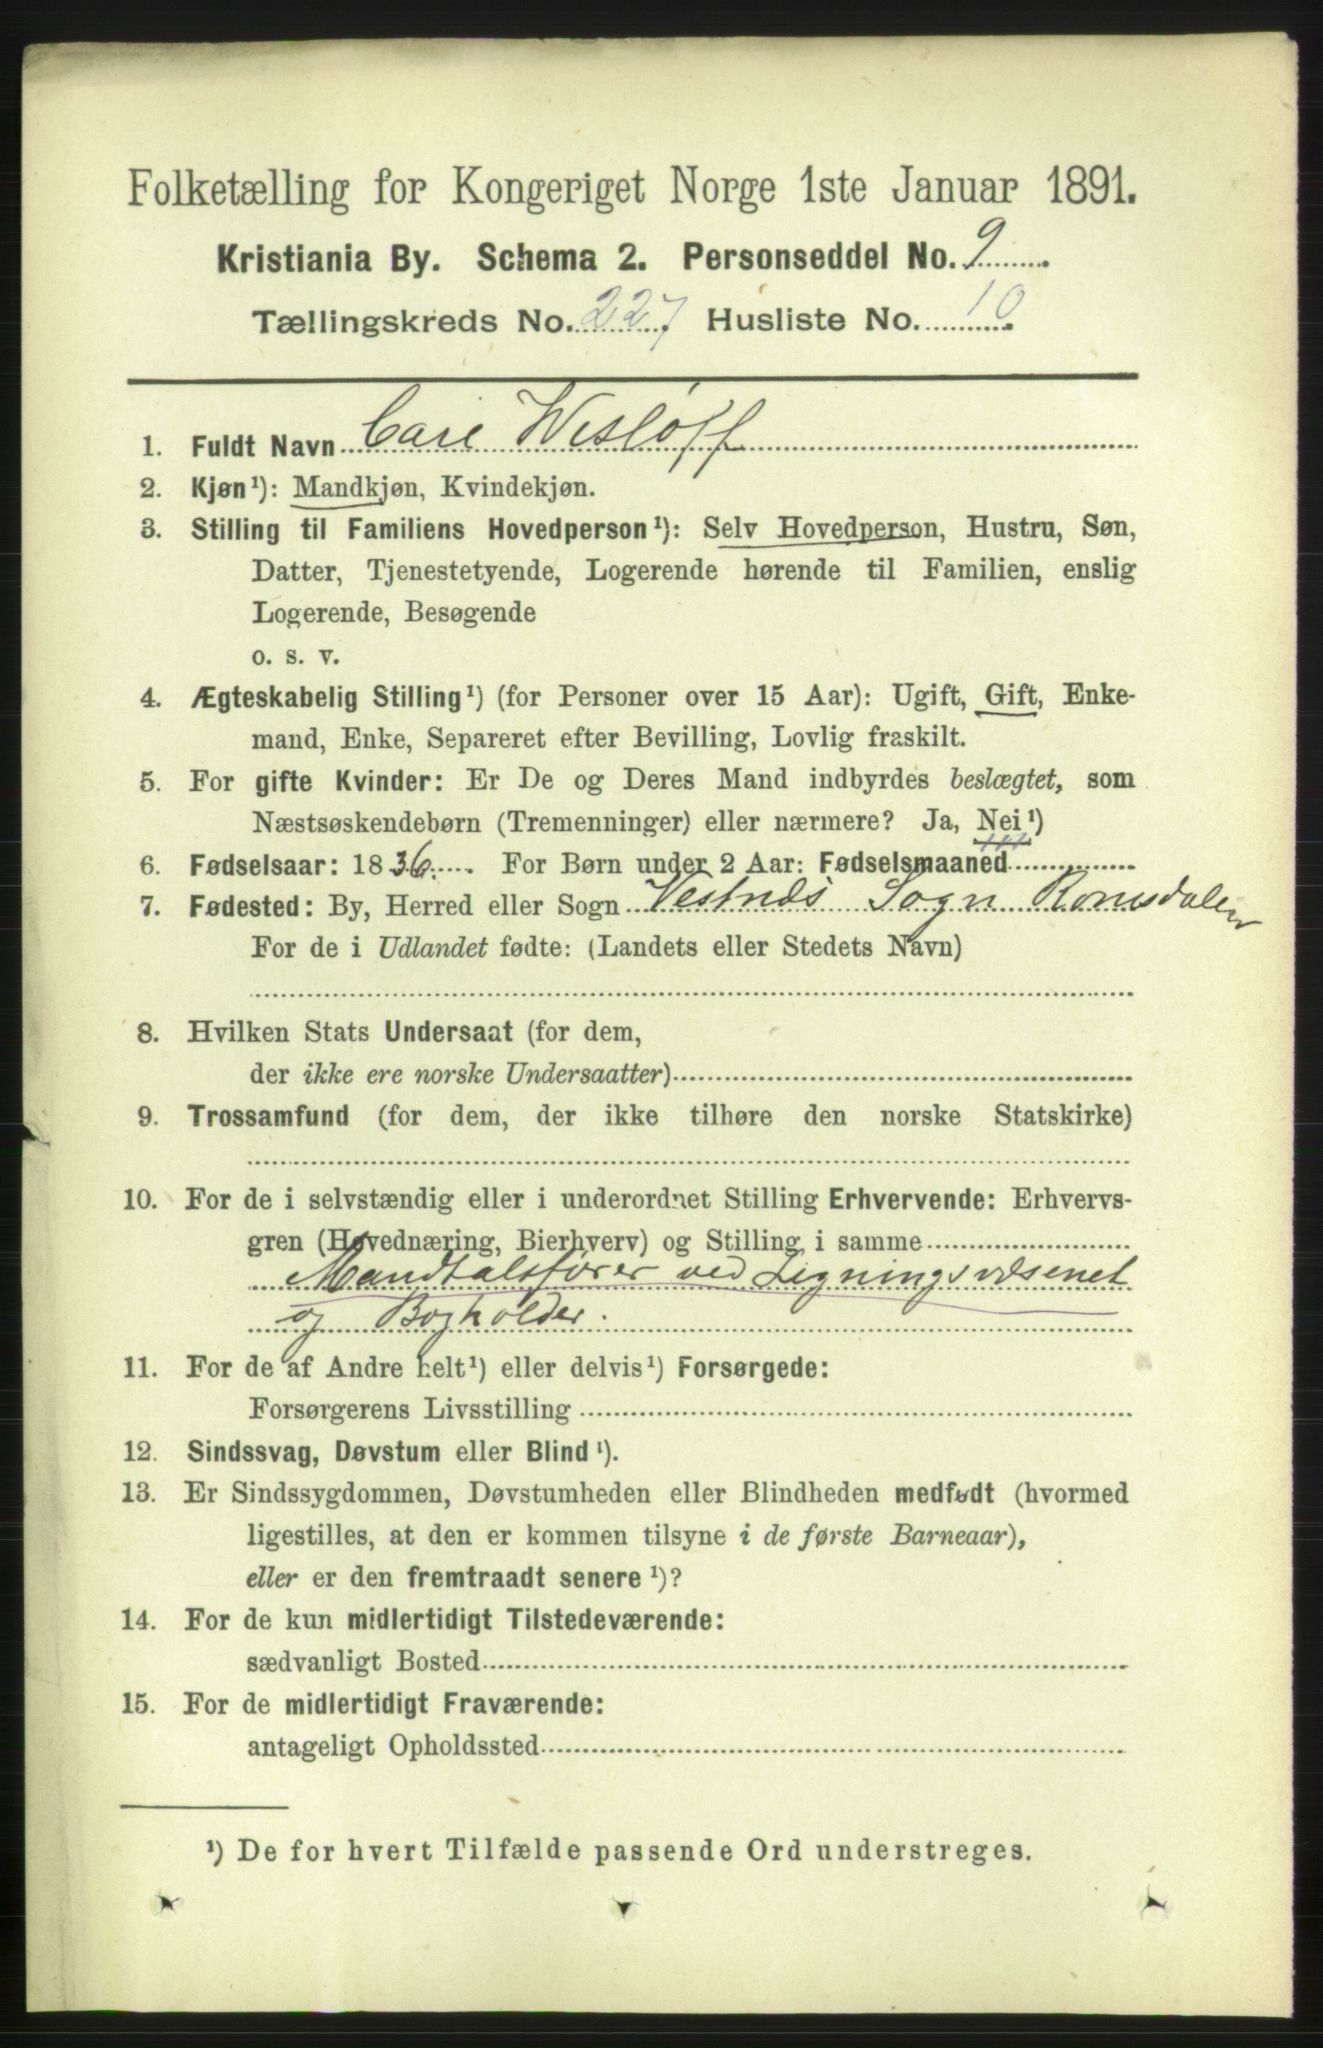 Folketælling for Kongeriget Norge 1ste Januar 1891.
Kristiania By. Schema 2. Personseddel No. 9
Tællingskreds No. 227. Husliste No. 10
1. Fuldt Navn Carl Wisløff
2. Kjøn¹): Mandkjøn, Kvindekjøn.
3. Stilling til Familiens Hovedperson¹): Selv Hovedperson, Hustru, Søn,
Datter, Tjenestetyende, Logerende hørende til Familien, enslig
Logerende, Besøgende
o. s. v.
4. Ægteskabelig Stilling¹) (for Personer over 15 Aar): Ugift, Gift, Enke-
mand, Enke, Separeret efter Bevilling, Lovlig fraskilt.
5. For gifte Kvinder: Er De og Deres Mand indbyrdes beslægtet, som
Næstsøskendebørn (Tremenninger) eller nærmere? Ja, Nei¹)
6. Fødselsaar: 1836. For Børn under 2 Aar: Fødselsmaaned
7. Fødested: By, Herred eller Sogn Vestnæs Sogn Romsdalen
For de i Udlandet fødte: (Landets eller Stedets Navn)
8. Hvilken Stats Undersaat (for dem,
der ikke ere norske Undersaatter)
9. Trossamfund (for dem, der ikke tilhøre den norske Statskirke)
10. For de i selvstændig eller i underordnet Stilling Erhvervende: Erhvervs-
gren (Hovednæring, Bierhverv) og Stilling i samme
Mandtalsfører ved Ligningsvæsenet
og Bogholder.
11. For de af Andre helt¹) eller delvis¹) Forsørgede:
Forsørgerens Livsstilling
12. Sindssvag, Døvstum eller Blind¹).
13. Er Sindssygdommen, Døvstumheden eller Blindheden medfødt (hvormed
ligestilles, at den er kommen tilsyne i de første Barneaar),
eller er den fremtraadt senere¹)?
14. For de kun midlertidigt Tilstedeværende:
sædvanligt Bosted
15. For de midlertidigt Fraværende:
antageligt Opholdssted
¹) De for hvert Tilfælde passende Ord understreges.